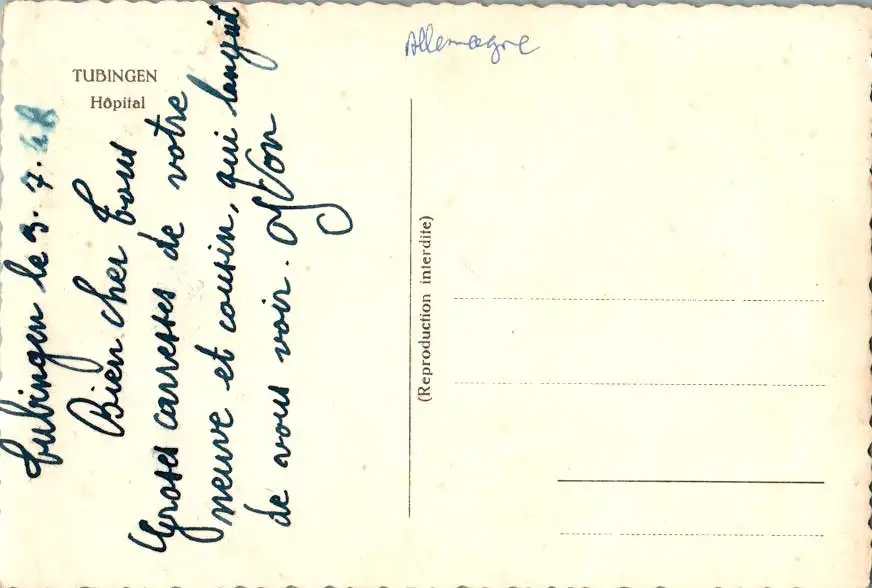 TUBINGEN
Hôpital
Allemagne
Tubingen le 3.7.48
Bien cher tous
Groses carresses de votre
neuve et cousin, qui languit
de vous voir. Yvon
(Reproduction interdite)